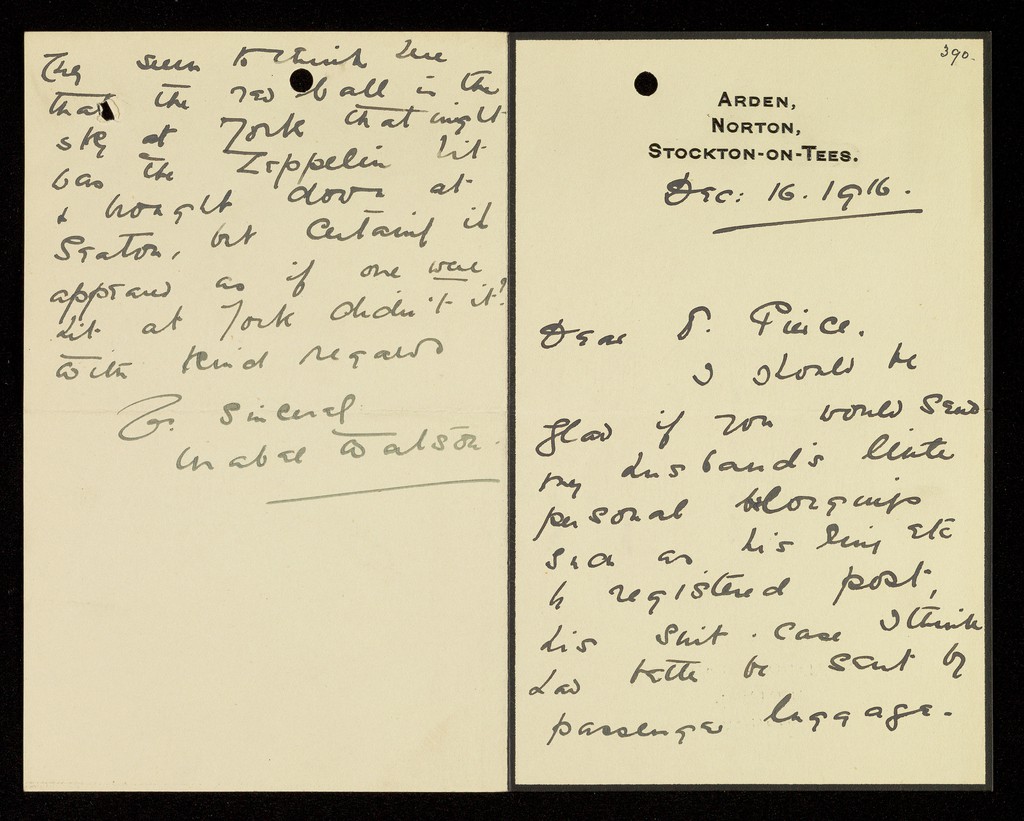 390.
ARDEN,
NORTON,
STOCKTON-ON-TEES.
Dec: 16. 1916.
Dear Dr. Pierce.
I should be
glad if you would send
my husband's little
personal belongings
such as his ring etc
by registered post,
his suit-case I think
had better be sent by
passenger luggage.
They seem to think here
that the red ball in the
sky at York that night
was the Zeppelin hit
& brought down at
Seaton, but certainly it
appeared as if one were
hit at York didn't it?
With kind regards
Yrs. sincerely
Mabel Watson.